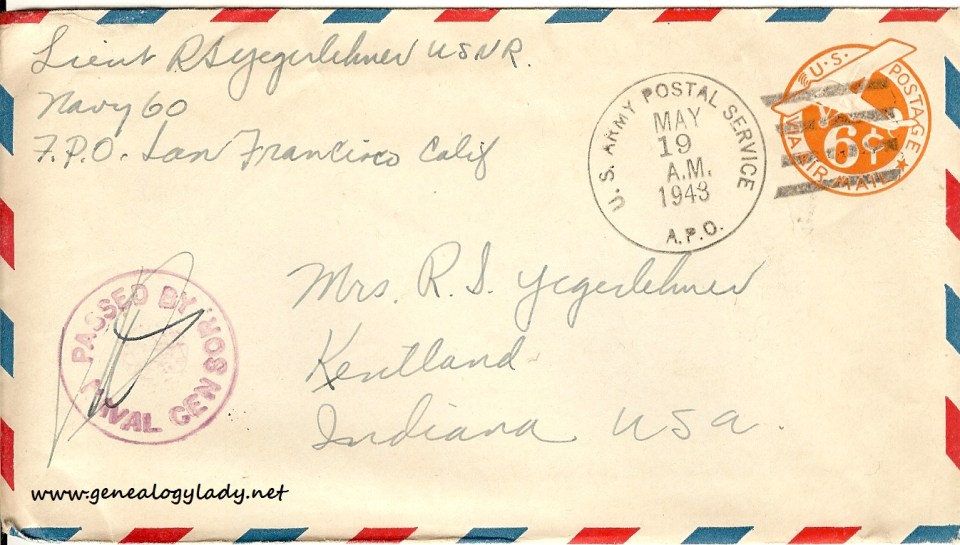 Lieut R S Yegerlehner USNR.
Navy 60
F.P.O. San Francisco Calif
U.S. ARMY POSTAL SERVICE
MAY
19
A.M.
1943
A.P.O.
U.S. POSTAGE
6¢
VIA AIR MAIL
Mrs. R. S. Yegerlehner
Kentland
Indiana USA.
PASSED BY
NAVAL CENSOR
www.genealogylady.net